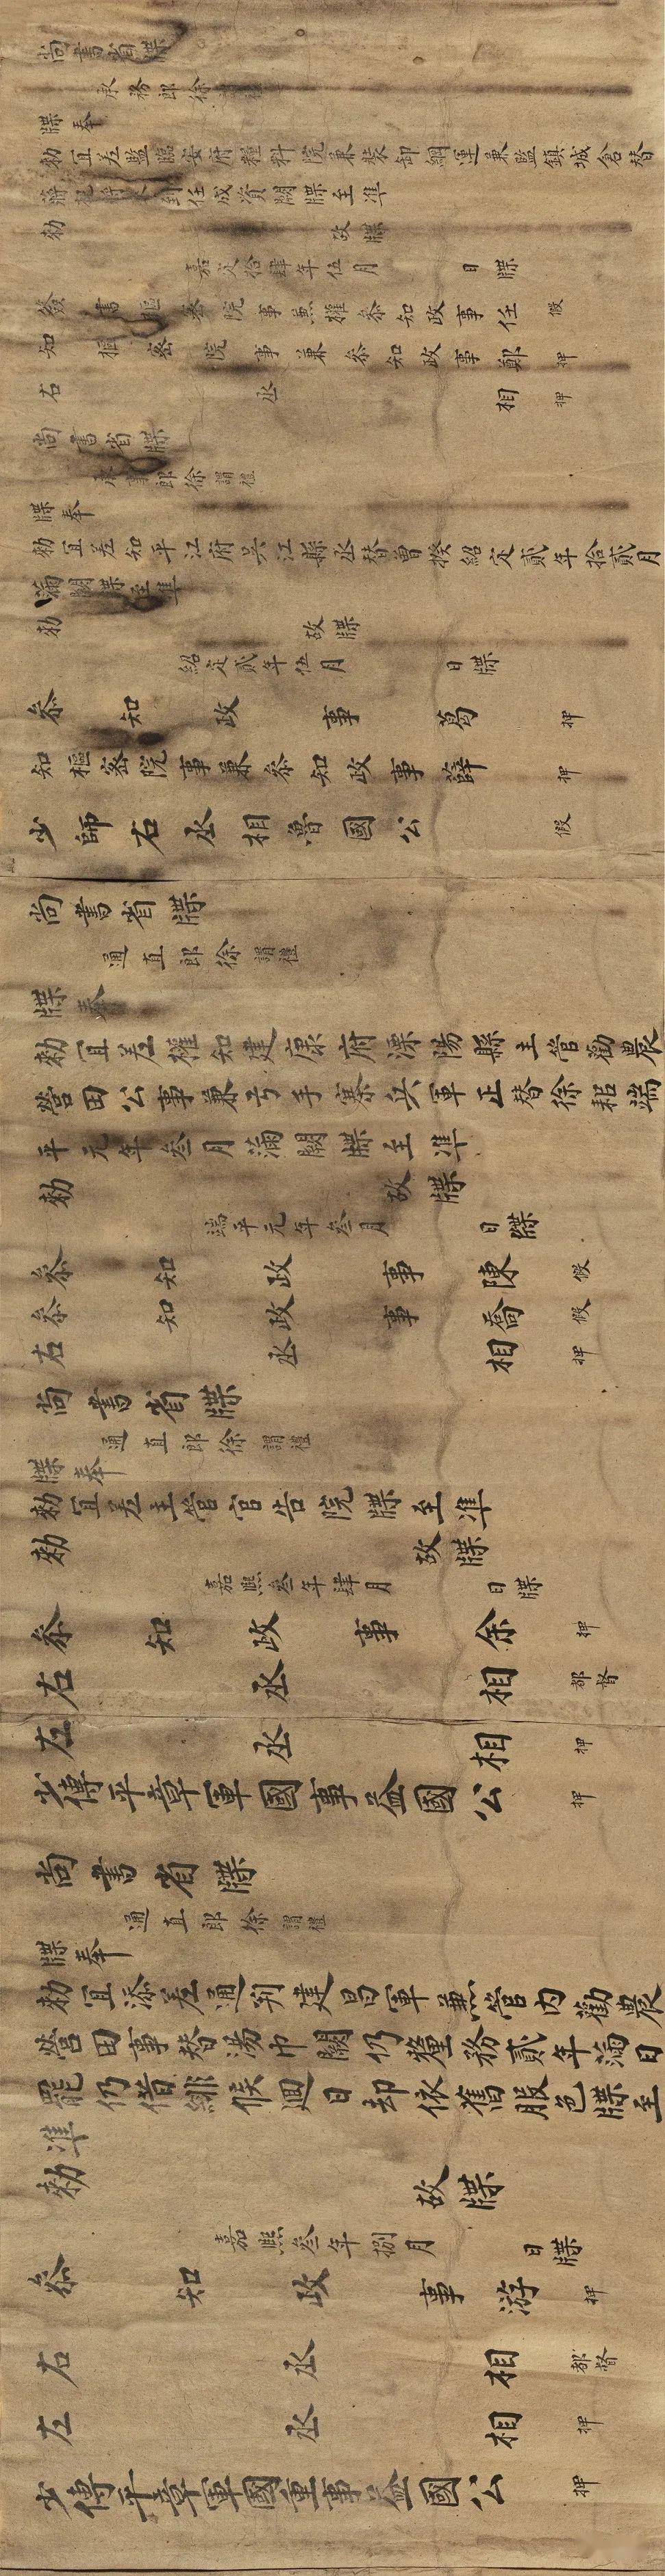 尚書省牒
承務郎徐謂禮
牒奉
勑宜差監臨安府糧料院兼裝卸綱運兼監鎮城倉替
蔣杞將來到任成資闕牒至准
勑故牒
嘉定拾肆年伍月日牒
簽書樞密院事兼權參知政事任假
知樞密院事兼參知政事鄭押
右丞相押
尚書省牒
承事郎徐謂禮
牒奉
勑宜差知平江府吳江縣丞替曾揆紹定貳年拾貳月
滿闕牒至準
勑故牒
紹定貳年伍月日牒
參知政事葛押
知樞密院事兼參知政事薛押
少師右丞相魯國公假
尚書省牒
通直郎徐謂禮
牒奉
勑宜差權知建康府溧陽縣主管勸農
營田公事兼弓手寨兵軍正替徐耜端
平元年叁月滿闕牒至準
勑故牒
端平元年叁月日牒
參知政事陳假
參知政事喬假
右丞相押
尚書省牒
通直郎徐謂禮
牒奉
勑宜差主管官告院牒至準
勑故牒
嘉熙叁年肆月日牒
參知政事余押
右丞相都督
左丞相押
少傅平章軍國事益國公押
尚書省牒
通直郎徐謂禮
牒奉
勑宜添差通判建昌軍兼管內勸農
營田事替湯巾闕仍釐務貳年滿日
罷仍借緋候迴日却依舊服色牒至
準
勑故牒
嘉熙叁年捌月日牒
參知政事游押
右丞相都督
左丞相押
少傅平章軍國重事益國公押